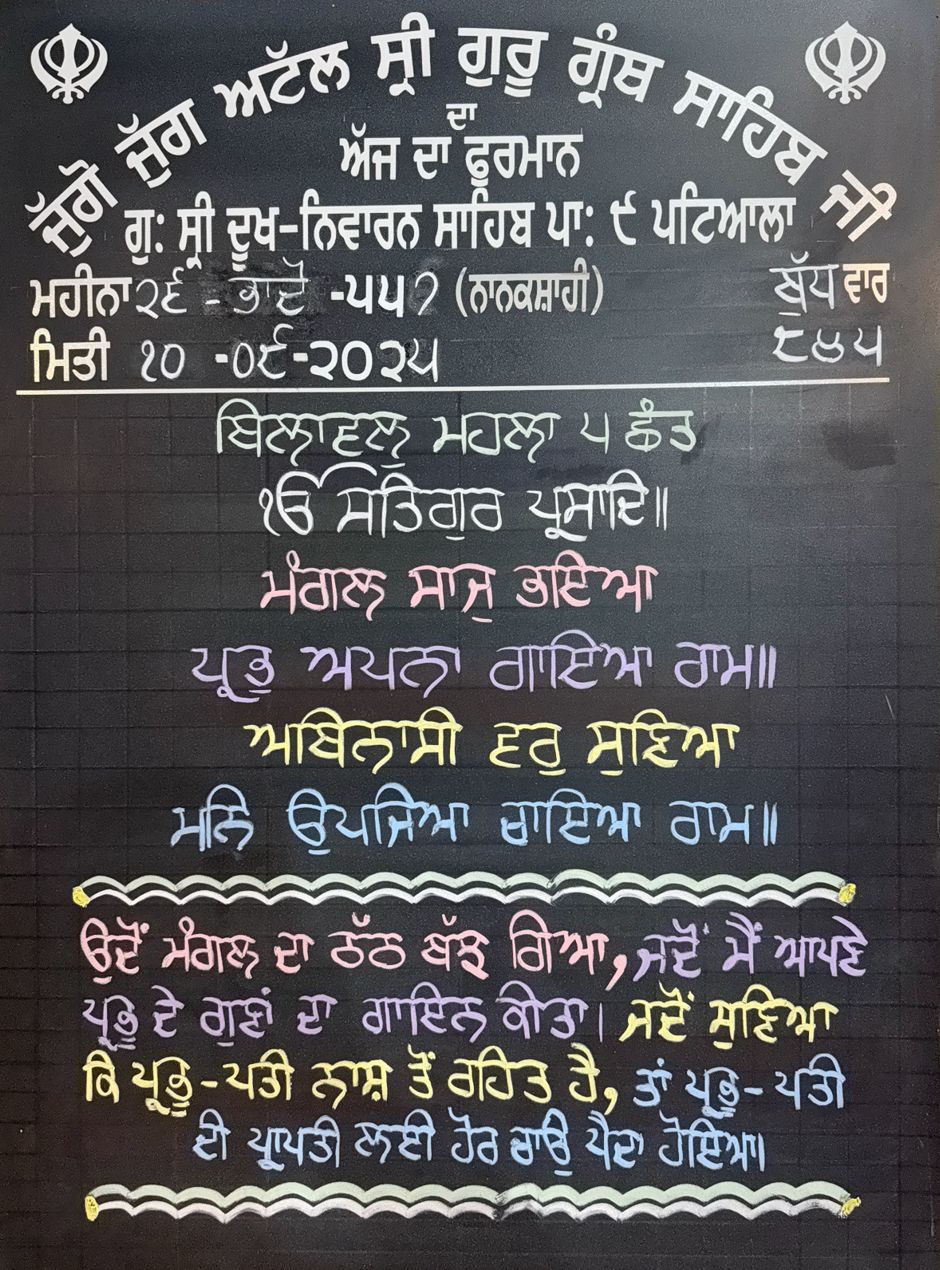 ਜੁੱਗੋ ਜੁੱਗ ਅਟੱਲ ਸ੍ਰੀ ਗੁਰੂ ਗ੍ਰੰਥ ਸਾਹਿਬ ਜੀ
ਦਾ
ਅੱਜ ਦਾ ਫੁਰਮਾਨ
ਗੁ: ਸ੍ਰੀ ਦੂਖ-ਨਿਵਾਰਨ ਸਾਹਿਬ ਪਾ: ੯ ਪਟਿਆਲਾ
ਮਹੀਨਾ ੨੬ - ਭਾਦੋਂ -੫੫੭ (ਨਾਨਕਸ਼ਾਹੀ) ਬੁੱਧ ਵਾਰ
ਮਿਤੀ ੧੦ -੦੯-੨੦੨੫ ੮੪੫
ਬਿਲਾਵਲੁ ਮਹਲਾ ੫ ਛੰਤ
ੴ ਸਤਿਗੁਰ ਪ੍ਰਸਾਦਿ॥
ਮੰਗਲ ਸਾਜੁ ਭਇਆ
ਪ੍ਰਭੁ ਅਪਨਾ ਗਾਇਆ ਰਾਮ॥
ਅਬਿਨਾਸੀ ਵਰੁ ਸੁਣਿਆ
ਮਨਿ ਉਪਜਿਆ ਚਾਇਆ ਰਾਮ॥
ਉਦੋਂ ਮੰਗਲ ਦਾ ਠੱਠ ਬੱਝ ਗਿਆ, ਜਦੋਂ ਮੈਂ ਆਪਣੇ
ਪ੍ਰਭੂ ਦੇ ਗੁਣਾਂ ਦਾ ਗਾਇਨ ਕੀਤਾ। ਜਦੋਂ ਸੁਣਿਆ
ਕਿ ਪ੍ਰਭੂ-ਪਤੀ ਨਾਸ਼ ਤੋਂ ਰਹਿਤ ਹੈ, ਤਾਂ ਪ੍ਰਭੂ-ਪਤੀ
ਦੀ ਪ੍ਰਾਪਤੀ ਲਈ ਹੋਰ ਚਾਉ ਪੈਦਾ ਹੋਇਆ॥